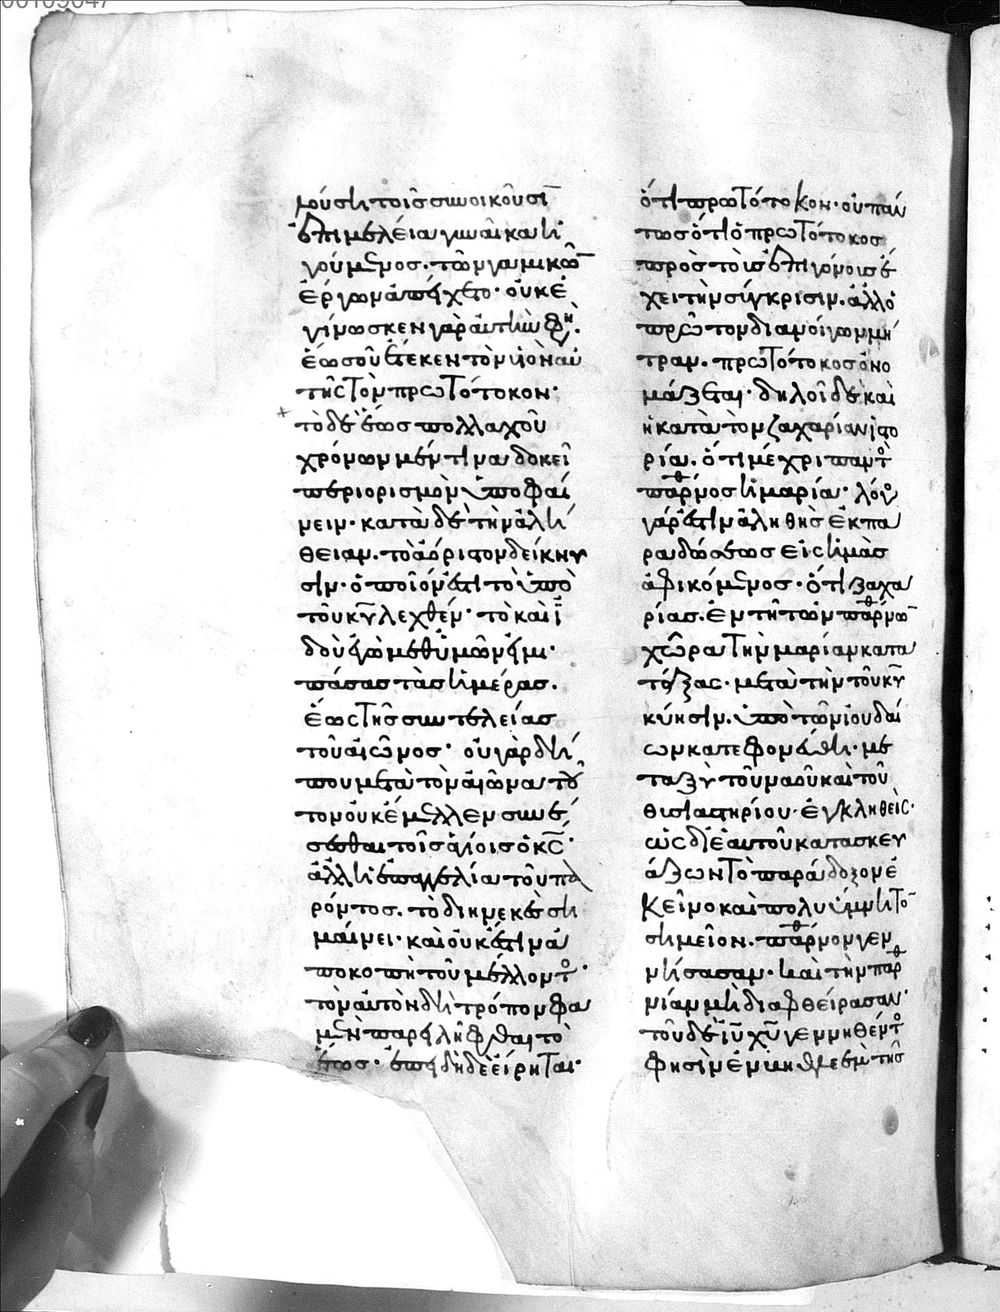 μούση τοῖς συνοικοῦσῖ
ἐπιμελεία γυναικα ἡ
γούμενος. τῶν γαμικῶ
ἔργων ἀπείχετο· οὐκ ἐ
γίνωσκεν γὰρ αὐτὴν φη.
ἕως οὗ ἔτεκεν τὸν υἱὸν αὐ
τῆς τὸν πρωτότοκον·
τὸ δὲ ἕως πολλαχοῦ
χρόνων μέν τινα δοκεῖ
περιορισμὸν ὑποφαί
νειν· κατὰ δὲ τὴν ἀλή
θειαν. τὸ ἀόριστον δείκνυ
σιν· ὁποῖόν ἐστι τὸ ὑπὸ
τοῦ κυ λεχθέν· τὸ καὶ ἰ
δοὺ ἐγὼ μεθ' ὑμῶν εἰμι·
πάσας τὰς ἡμέρας.
ἕως τῆς συντελείας
τοῦ αἰῶνος· οὐ γὰρ δή
που μετὰ τὸν αἰῶνα τοῦ
τον οὐκ ἔμελλεν συνέ
σεσθαι τοῖς ἁγίοις ὁ κς·
ἀλλ' ἡ ἐπαγγελία τοῦ πα
ρόντος. τὸ διηνεκὲς ση
μαίνει· καὶ οὐκ ἔστιν ἀ
ποκοπὴ τοῦ μέλλοντο·
τὸν αὐτὸν δὴ τρόπον φα
μὲν παρειλῆφθαι τὸ
ἕως· ἐπειδὴ δὲ εἴρηται·
ὅτι πρωτότοκον· οὐ πάν
τως ὅτι ὁ πρωτότοκος
πρὸς τοῖς ἐπιγόνοις ἔ
χει τὴν σύγκρισιν. ἀλλ' ὁ
πρῶτον διανοίγων μή
τραν. πρωτότοκος ὀνο
μάζεται· δηλοῖ δὲ καὶ
ἡ κατὰ τὸν ζαχαρίαν ἱστο
ρία. ὅτι μέχρι παντὸ
παρθνος ἡ μαρία· λόγο
γάρ ἐστιν ἀληθὴς ἐκ πα
ραδόσεως εἰς ἡμᾶς
ἀφικόμενος· ὅτι ζαχα
ρίας. ἐν τῇ τῶν παρθνω
χώρα τὴν μαρίαν κατα
τάξας· μετὰ τὴν τοῦ κυ
κύησιν. ὑπὸ τῶν ἰουδαί
ων κατεφονεύθη· με
ταξὺ τοῦ ναοῦ καὶ τοῦ
θυσιαστηρίου· ἐγκληθεὶς·
ὡς δι' ἑαυτοῦ κατασκευ
άζων τὸ παράδοξον ἐ
κεῖνο καὶ πολυύμνητο
σημεῖον. παρθνον γεν
νήσασαν· καὶ τὴν παρθ
νίαν μὴ διαφθείρασαν·
τοῦ δὲ ιυ χυ γεννηθέντο
φησὶν ἐν βηθλεὲμ· τῆς